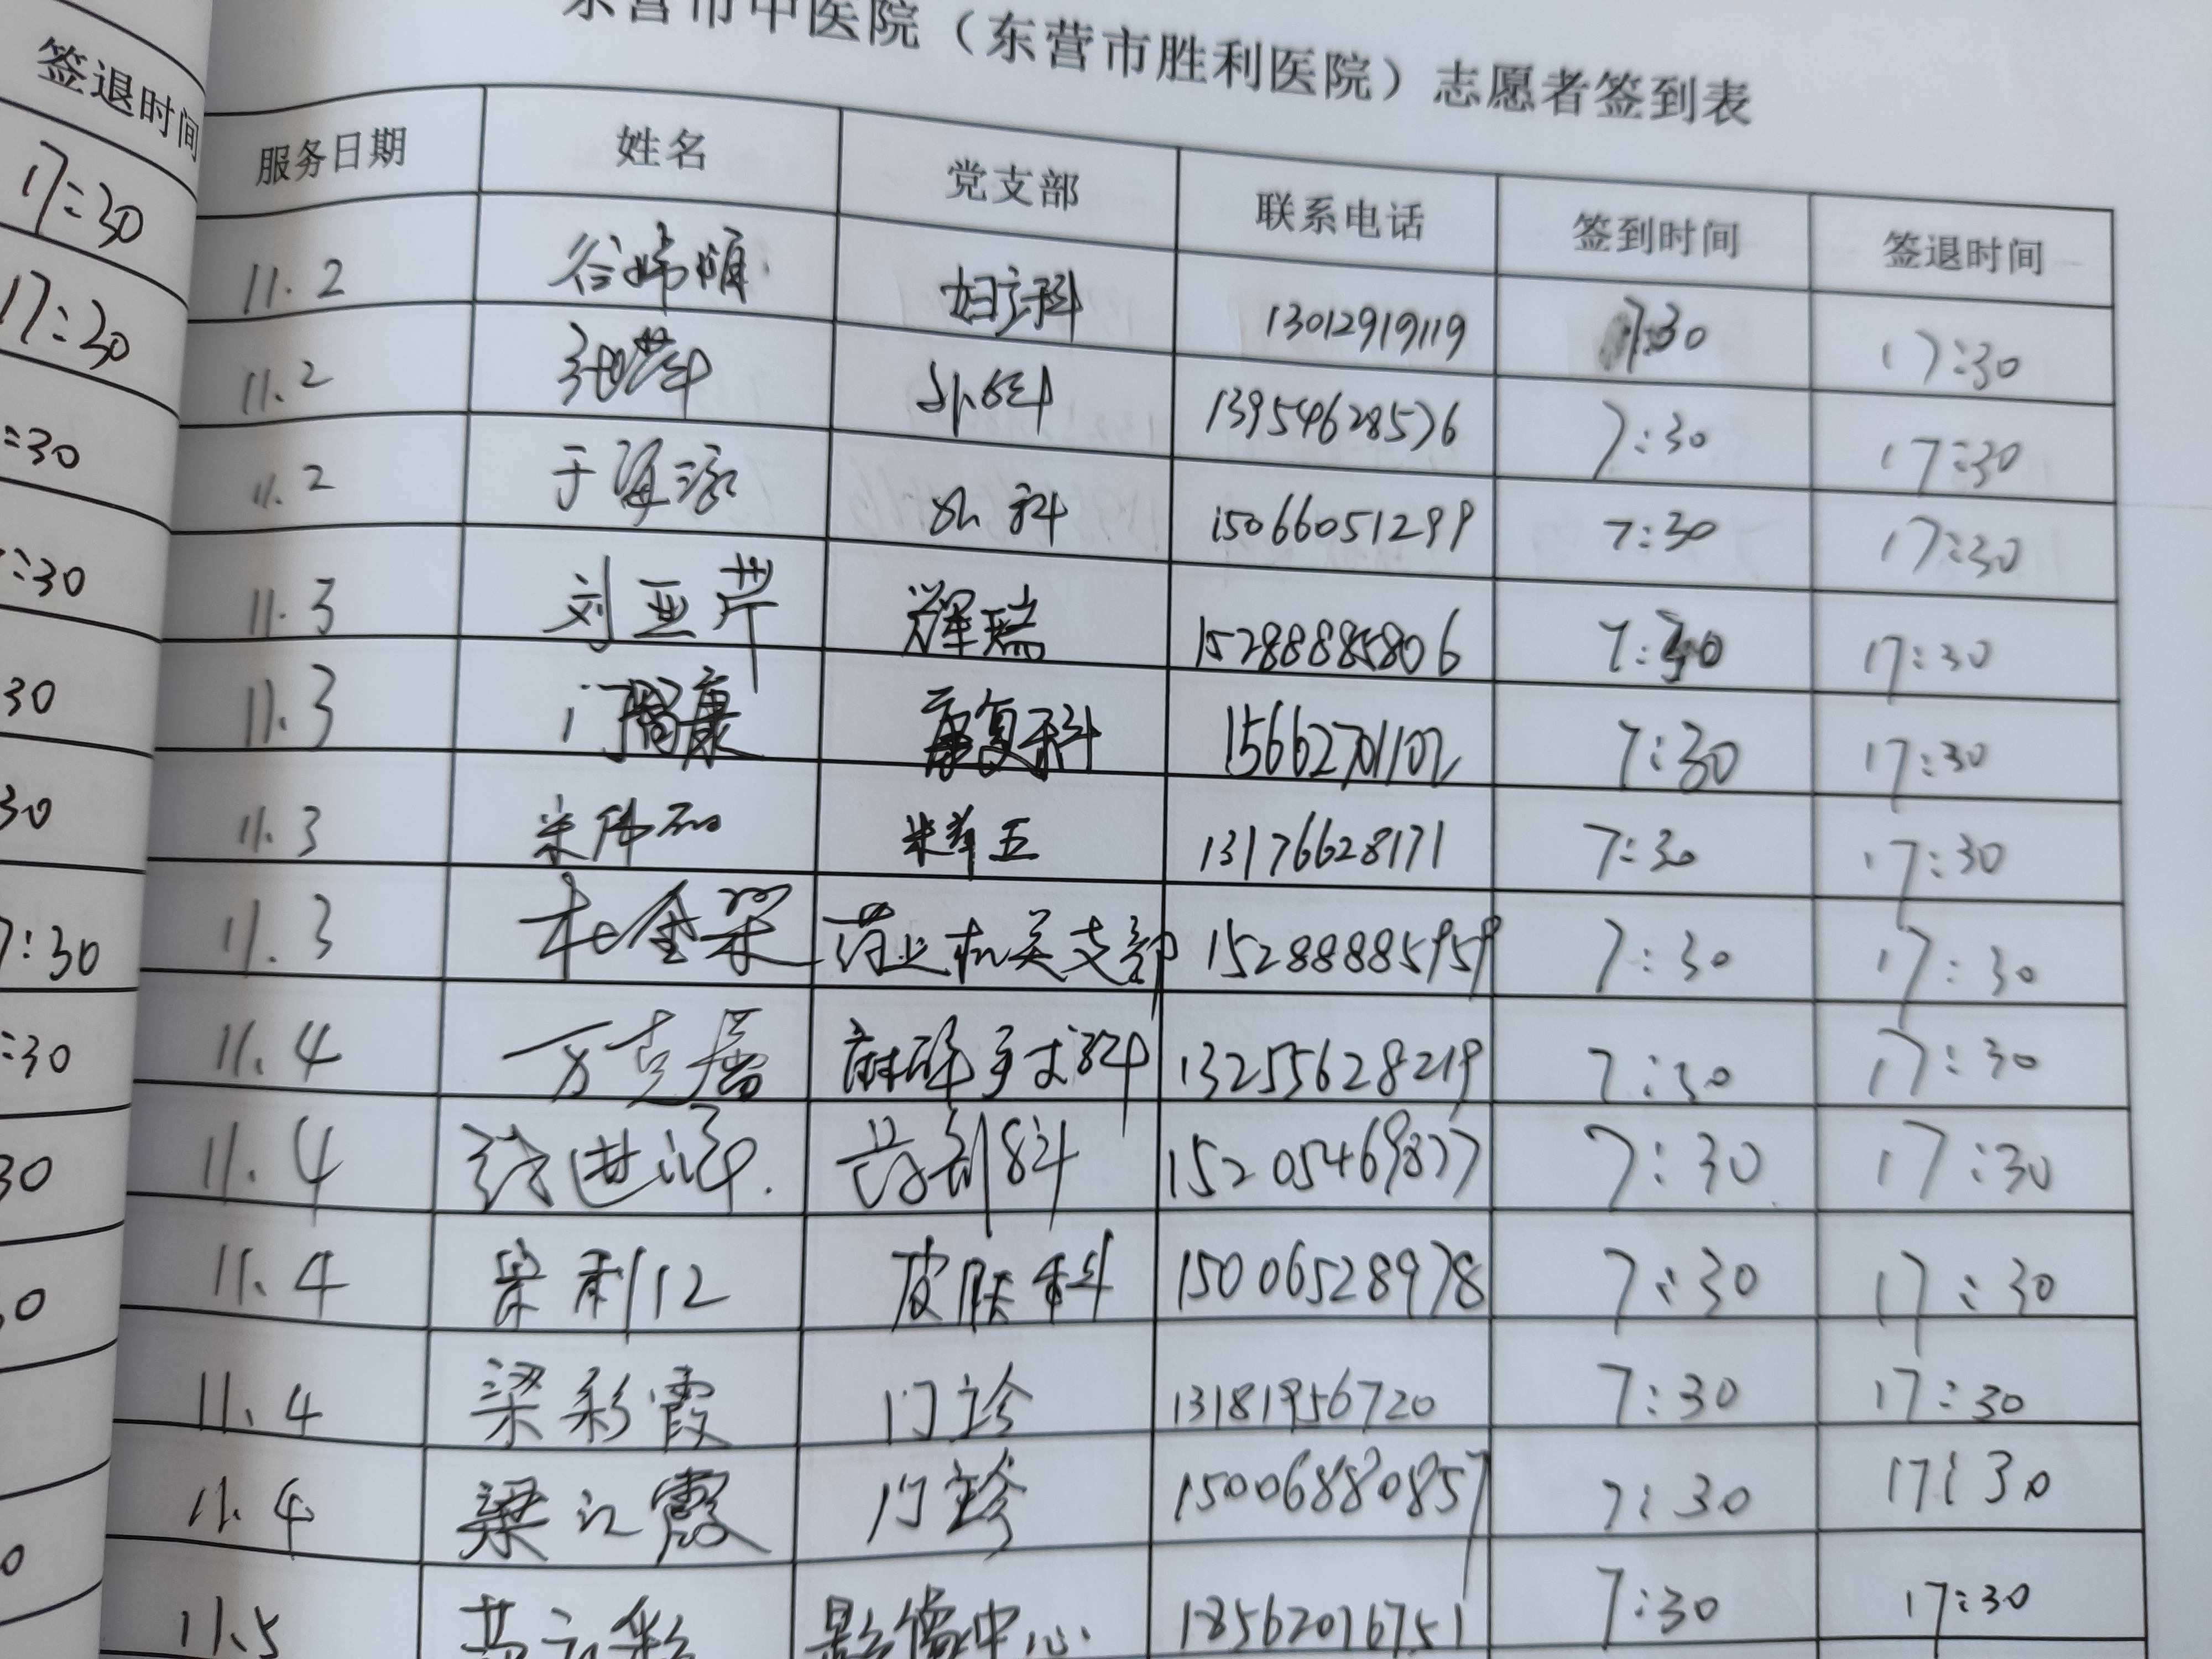 签退时间
17:30
17:30
:30
:30
30
30
7:30
:30
30
0
0
东营市中医院（东营市胜利医院）志愿者签到表
服务日期 姓名 党支部 联系电话 签到时间 签退时间
11.2 妇产科 13012919119 7:30 17:30
11.2 外科 13954628576 7:30 17:30
11.2 于海泳 外科 15066051299 7:30 17:30
11.3 刘亚芹 辉瑞 15288885806 7:30 17:30
11.3 康复科 15662701102 7:30 17:30
11.3 13176628171 7:30 17:30
11.3 杜金翠 药业机关支部 15288885959 7:30 17:30
11.4 麻醉手术科 13255628219 7:30 17:30
11.4 药剂科 15205469877 7:30 17:30
11.4 皮肤科 15006528978 7:30 17:30
11.4 梁彩霞 门诊 13181956720 7:30 17:30
11.4 梁江霞 门诊 15006880857 7:30 17:30
11.5 影像中心 18562076751 7:30 17:30